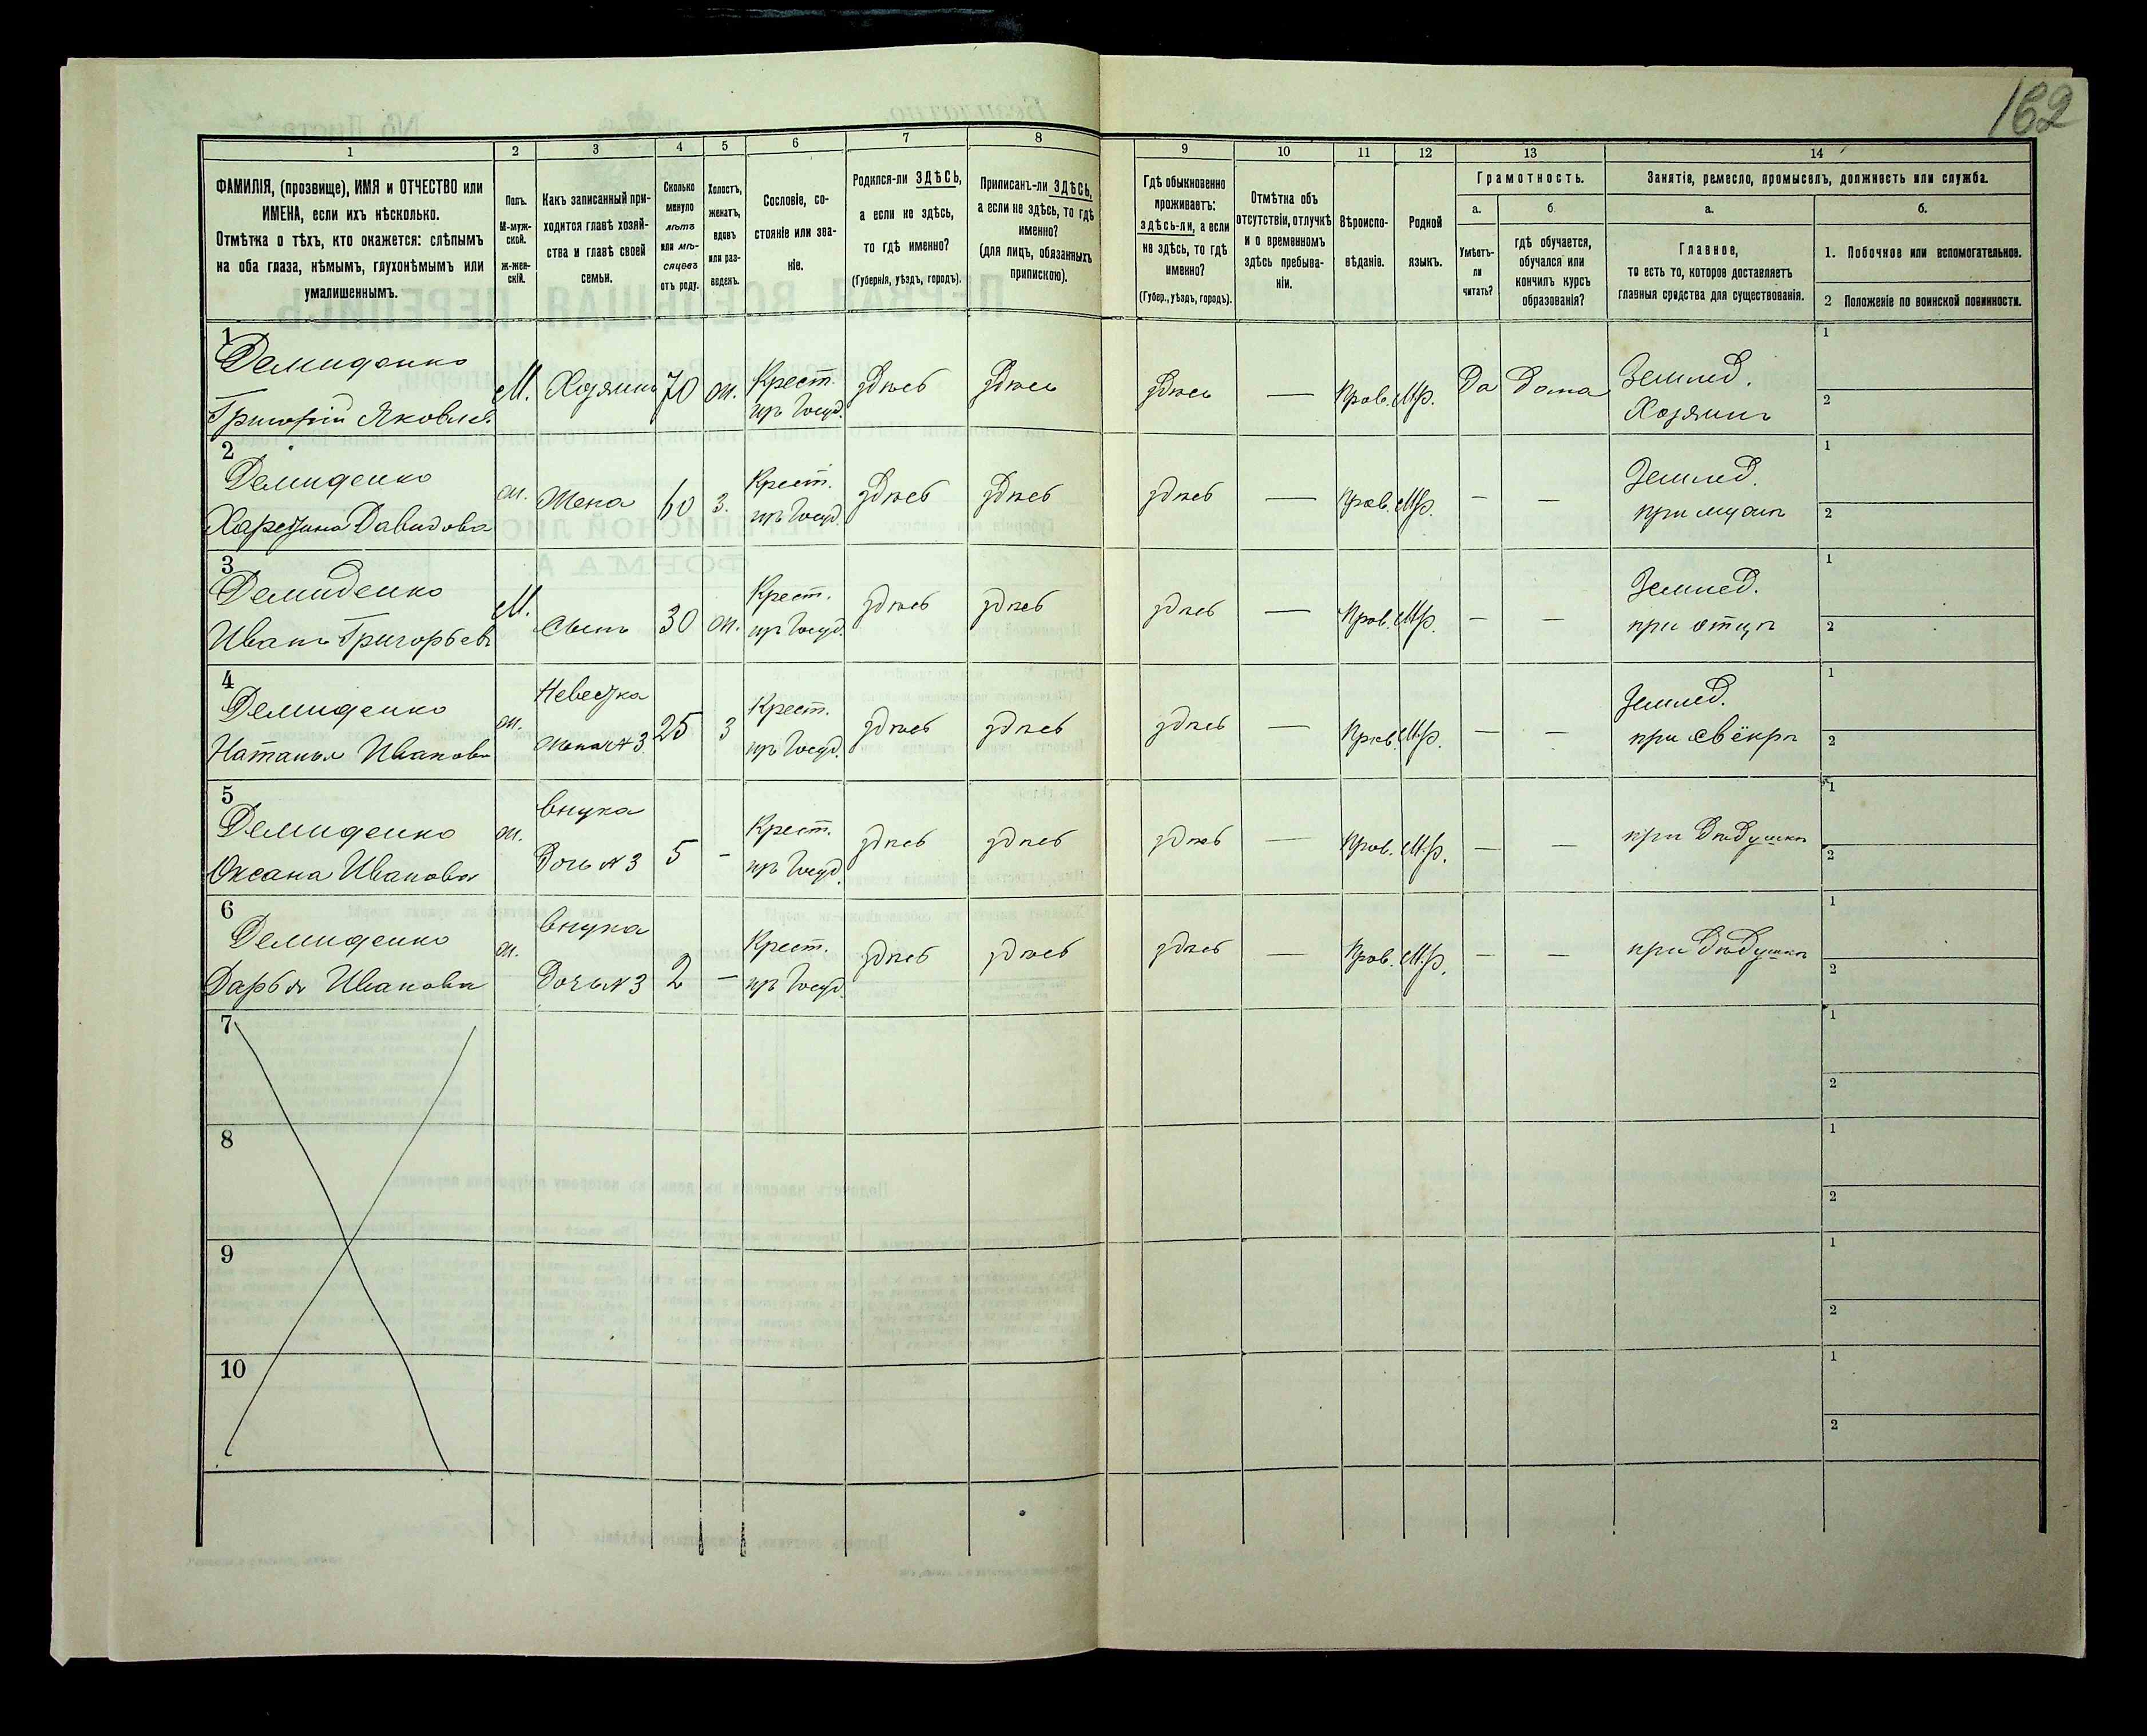 162
1
2
3
4
5
6
7
8
9
10
11
12
13
14
ФАМИЛІЯ, (прозвище), ИМЯ и ОТЧЕСТВО или
ИМЕНА, если ихъ нѣсколько.
Отмѣтка о тѣхъ, кто окажется: слѣпымъ
на оба глаза, нѣмымъ, глухонѣмымъ или
умалишеннымъ.
Полъ.
М-муж-
ской.
Ж-жен-
скій.
Какъ записанный при-
ходится главѣ хозяй-
ства и главѣ своей
семьи.
Сколько
минуло
лѣтъ
или мѣ-
сяцевъ
отъ роду.
Холостъ,
женатъ,
вдовъ
или раз-
веденъ.
Сословіе, со-
стояніе или зва-
ніе.
Родился-ли ЗДѢСЬ,
а если не здѣсь,
то гдѣ именно?
(Губернія, уѣздъ, городъ).
Приписанъ-ли ЗДѢСЬ,
а если не здѣсь, то гдѣ
именно?
(для лицъ, обязанныхъ
припискою).
Гдѣ обыкновенно
проживаетъ:
здѣсь-ли, а если
не здѣсь, то гдѣ
именно?
(Губер., уѣздъ, городъ).
Отмѣтка объ
отсутствіи, отлучкѣ
и о временномъ
здѣсь пребыва-
ніи.
Вѣроиспо-
вѣданіе.
Родной
языкъ.
Грамотность.
а.
б.
Умѣетъ-
ли
читать?
гдѣ обучается,
обучался или
кончилъ курсъ
образованія?
Занятіе, ремесло, промыселъ, должность или служба.
а.
б.
Главное,
то есть то, которое доставляетъ
главныя средства для существованія.
1. Побочное или вспомогательное.
2 Положеніе по воинской повинности.
1
Демиденко
Григорій Яковлев
М. Хозяинъ 70 ж. Крест.
изъ Госуд.
здѣсь здѣсь здѣсь — Прав. Мр. Да Дома Землед.
Хозяинъ
1
2
2
Демиденко
Харетина Давидова
ж. Жена 60 з. Крест.
изъ Госуд.
здѣсь здѣсь здѣсь — Прав. Мр. — — Землед.
при мужѣ
1
2
3
Демиденко
Иванъ Григорьевъ
М. Сынъ 30 ж. Крест.
изъ Госуд.
здѣсь здѣсь здѣсь — Прав. Мр. — — Землед.
при отцѣ
1
2
4
Демиденко
Наталья Иванова
ж. Невестка
жена №3 25 з Крест.
изъ Госуд.
здѣсь здѣсь здѣсь — Прав. Мр. — — Землед.
при свёкрѣ
1
2
5
Демиденко
Оксана Иванова
ж. внука
Дочь №3 5 — Крест.
изъ Госуд.
здѣсь здѣсь здѣсь — Прав. Мр. — — при дѣдушкѣ
1
2
6
Демиденко
Дарья Иванова
ж. внука
Дочь №3 2 — Крест.
изъ Госуд.
здѣсь здѣсь здѣсь — Прав. Мр. — — при дѣдушкѣ
1
2
7
1
2
8
1
2
9
1
2
10
1
2